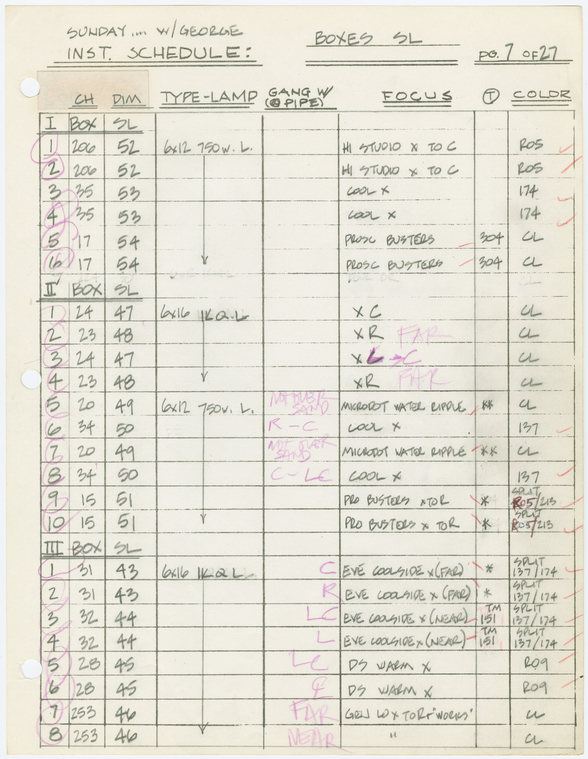 SUNDAY.... W/GEORGE
INST. SCHEDULE:
BOXES SL
PG. 7 OF 27
CH DIM TYPE-LAMP GANG W/ (@ PIPE) FOCUS T COLOR
I BOX SL
1 206 52 6x12 750W. L. HI STUDIO X TO C R05
2 206 52 HI STUDIO X TO C R05
3 35 53 COOL X 174
4 35 53 COOL X 174
5 17 54 PROSC BUSTERS 304 CL
6 17 54 PROSC BUSTERS 304 CL
II BOX SL
1 24 47 6x16 1K Q.L. X C CL
2 23 48 X R FAR CL
3 24 47 X L → C CL
4 23 48 X R FAR CL
5 20 49 6x12 750W. L. NOT OVER SAND MICRODOT WATER RIPPLE ** CL
6 34 50 R - C COOL X 137
7 20 49 NOT OVER SAND MICRODOT WATER RIPPLE ** CL
8 34 50 C - LC COOL X 137
9 15 51 PRO BUSTERS X TO R * SPLIT R05/213
10 15 51 PRO BUSTERS X TO R * SPLIT R05/213
III BOX SL
1 31 43 6x16 1K Q.L. C EVE COOLSIDE X (FAR) * SPLIT 137/174
2 31 43 R EVE COOLSIDE X (FAR) * SPLIT 137/174
3 32 44 LC EVE COOLSIDE X (NEAR) TM 151 SPLIT 137/174
4 32 44 L EVE COOLSIDE X (NEAR) TM 151 SPLIT 137/174
5 28 45 LC DS WARM X R09
6 28 45 DS WARM X R09
7 253 46 FAR LO X TO R "WORKS" CL
8 253 46 NEAR " CL